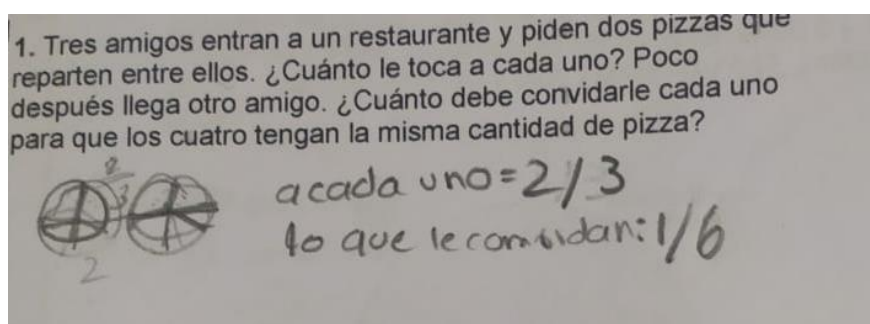 1. Tres amigos entran a un restaurante y piden dos pizzas que
reparten entre ellos. ¿Cuánto le toca a cada uno? Poco
después llega otro amigo. ¿Cuánto debe convidarle cada uno
para que los cuatro tengan la misma cantidad de pizza?
2
3
a cada uno=2/3
lo que le convidan: 1/6
2